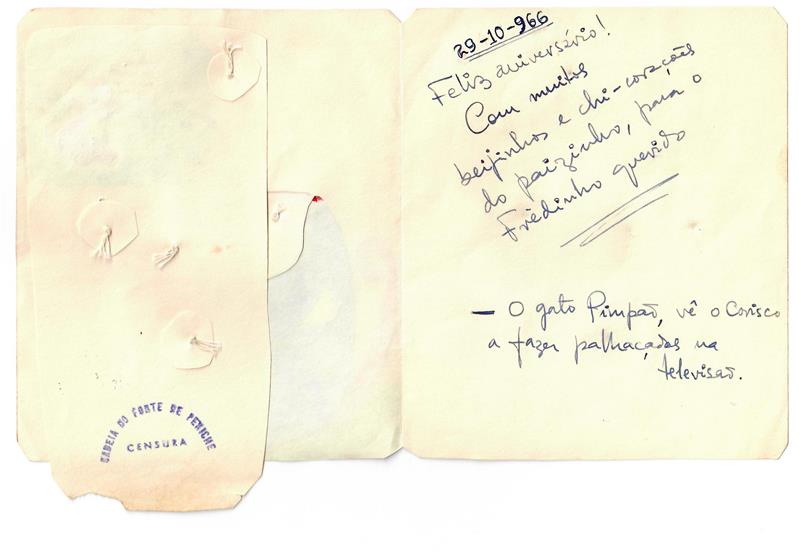 CADEIA DO FORTE DE PENICHE
CENSURA
29-10-966
Feliz aniversário!
Com muitos
beijinhos e chi-corações
do paizinho, para o
Frèdinho querido
— O gato Pimpaõ, vê o Corisco
a fazer palhaçadas na
televisaõ.